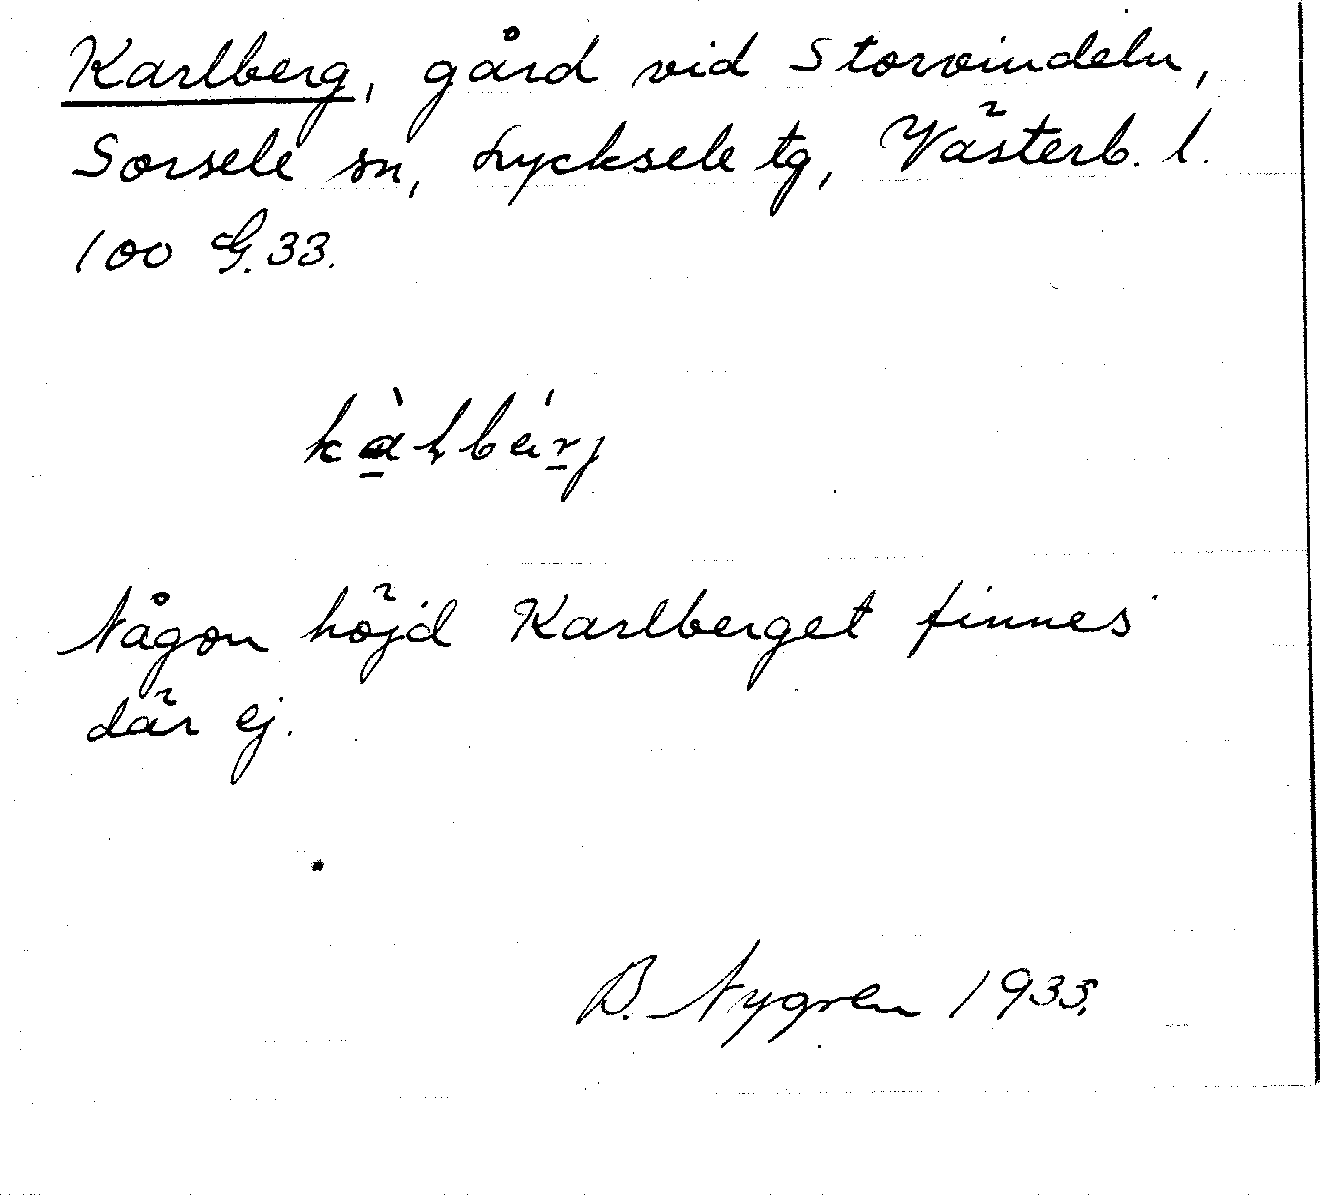 Karlberg, gård vid Storvindeln,
Sorsele sn, Lycksele tg, Västerb. l.
100 G. 33.
Någon höjd Karlberget finnes
där ej.
B. Nygren 1933.